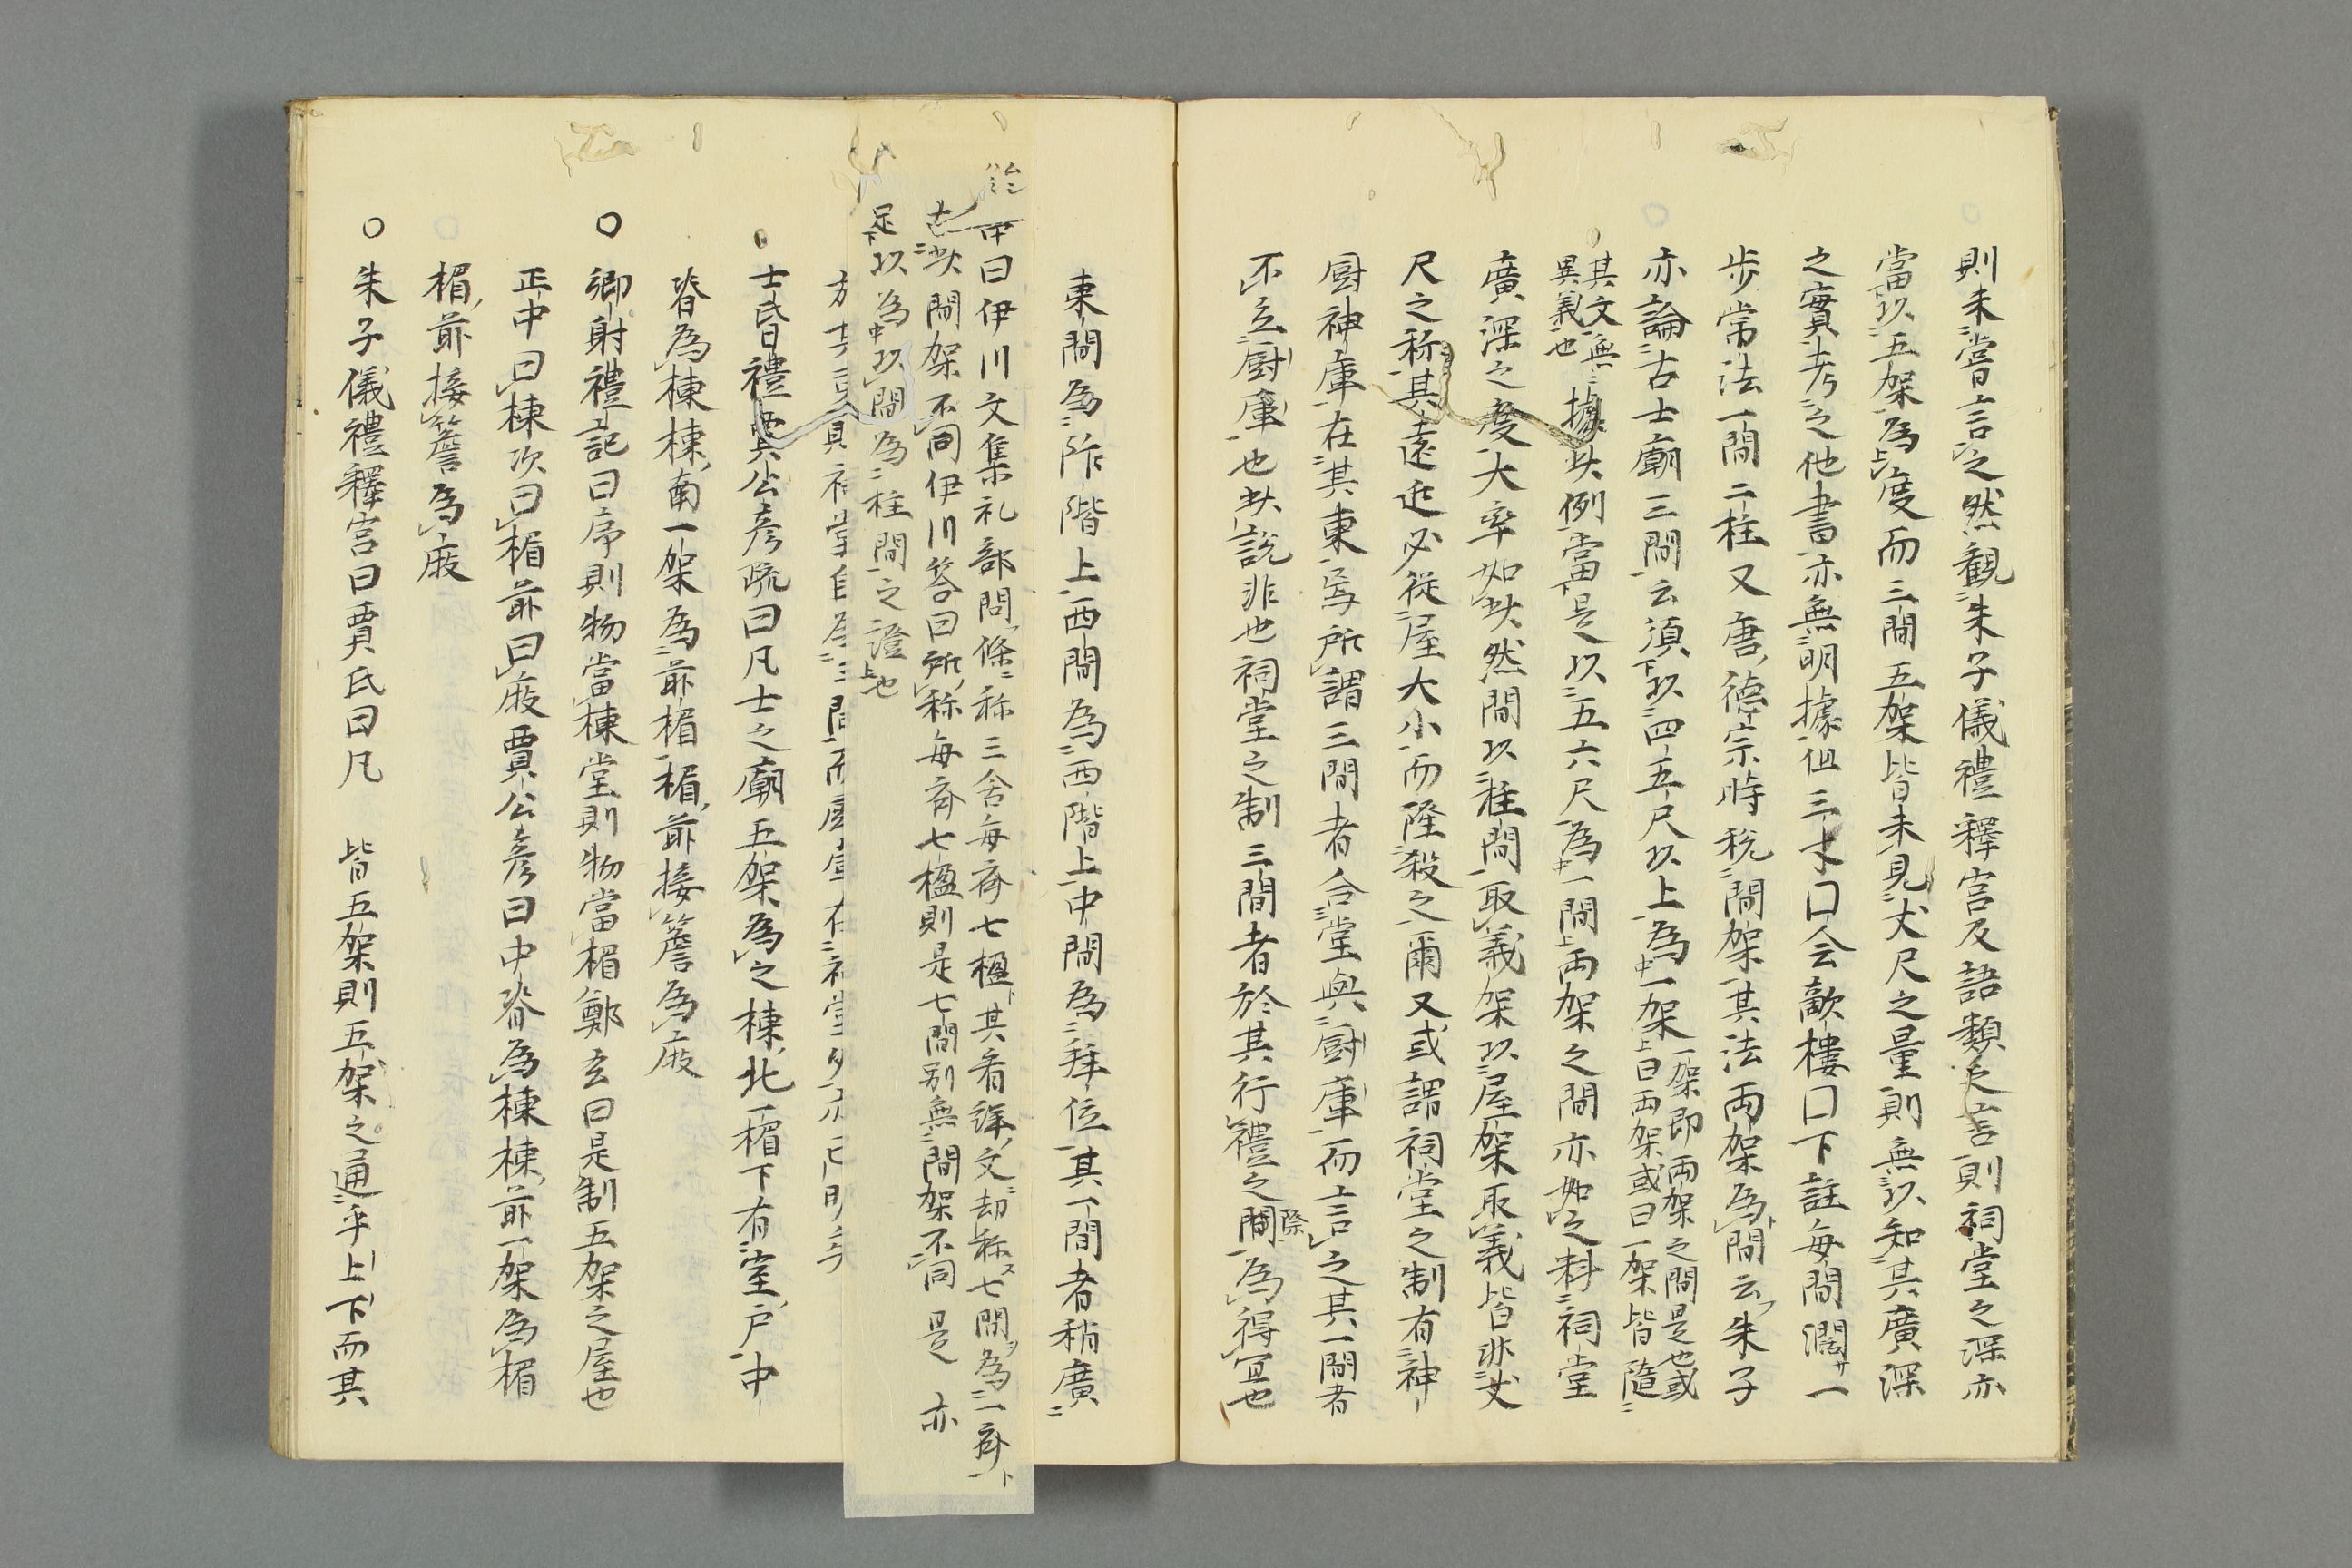 則未嘗言之然觀朱子儀禮釋宮及語類之言則祠堂之深亦
當以五架為度而三間五架皆未見丈尺之量則無以知其廣深
之實考之他書亦無明據但三才口会歒樓口下註每間濶廿一
步常法一間二柱又唐德宗時稅間架其法兩架為間云朱子
亦論古士廟三間云須以四五尺以上為一架一架即兩架之間是也或曰兩架或曰一架皆隨
其文無異義也據此例當是以五六尺為一間兩架之間亦如之料祠堂
廣深之度大率如此然間以柱間取義架以屋架取義皆非丈
尺之称其遠近必從屋大小而隆殺之爾又或謂祠堂之制有神
厨神庫在其東焉所謂三間者合堂與厨庫而言之其一間者
不立厨庫也此說非也祠堂之制三間者於其行禮之際為得宜也
東間為阼階上西間為西階上中間為拜位其一間者稍廣
中曰伊川文集礼部問條称三舍每齊七楹其看詳文却称七間為一齊ト
去此間架不同伊川答曰所称每齊七楹則是七間別無間架不同是亦
足以為以間為柱間之證也
士昏禮賈公彥疏曰凡士之廟五架為之棟北一楣下有室戶中
脊為棟棟南一架為前楣楣前接簷為庪
○鄉射禮記曰序則物當棟堂則物當楣鄭玄曰是制五架之屋也
正中曰棟次曰楣前曰庪賈公彥曰中脊為棟棟前一架為楣
楣前接簷為庪
○朱子儀禮釋宮曰賈氏曰凡 皆五架則五架之通乎上下而其